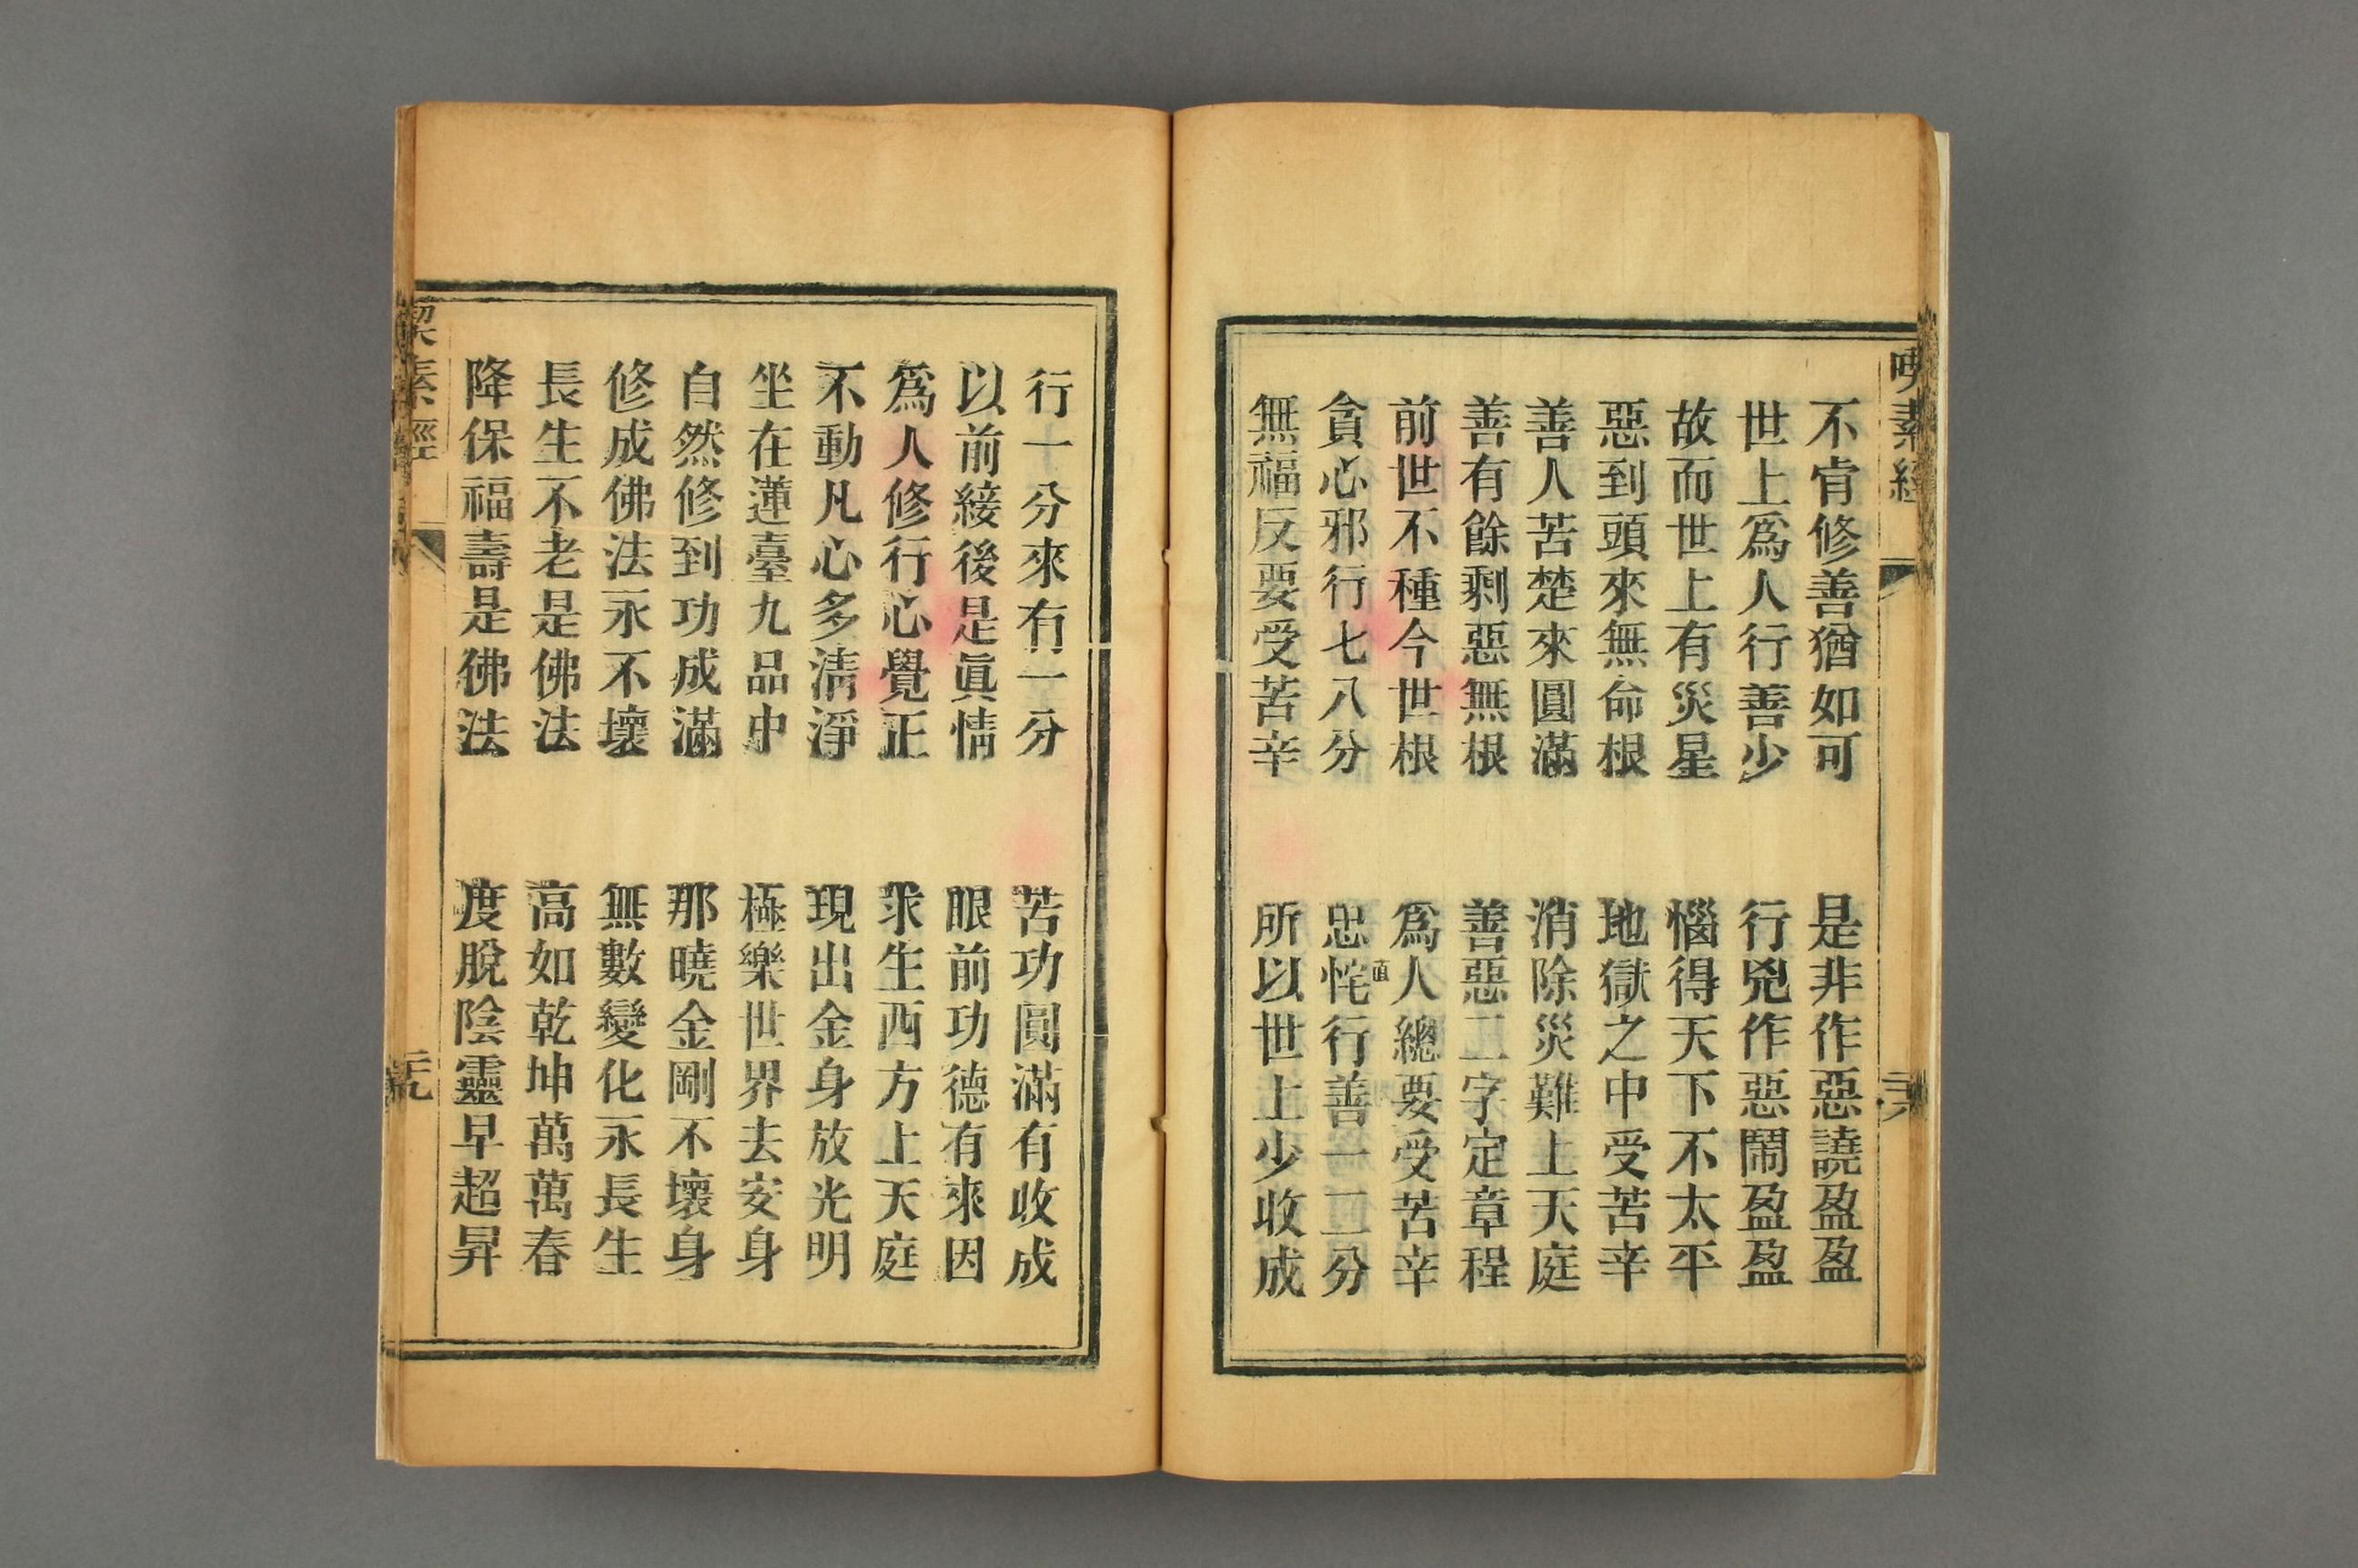 不肯修善猶如可 是非作惡譊盈盈
世上爲人行善少 行兇作惡鬧盈盈
故而世上有災星 惱得天下不太平
惡到頭來無命根 地獄之中受苦辛
善人苦楚來圓滿 消除災難上天庭
善有餘剩惡無根 善惡二字定章程
前世不種今世根 爲人總要受苦辛
貪心邪行七八分 忠恠直行善一二分
無福反要受苦辛 所以世上少收成
素經
行十分來有一分 苦功圓滿有收成
以前綾後是眞情 眼前功德有來因
爲人修行心覺正 求生西方上天庭
不動凡心多清淨 現出金身放光明
坐在蓮臺九品中 極樂世界去安身
自然修到功成滿 那曉金剛不壞身
修成佛法永不壞 無數變化永長生
長生不老是佛法 高如乾坤萬萬春
降保福壽是佛法 度脫陰靈早超昇
素經